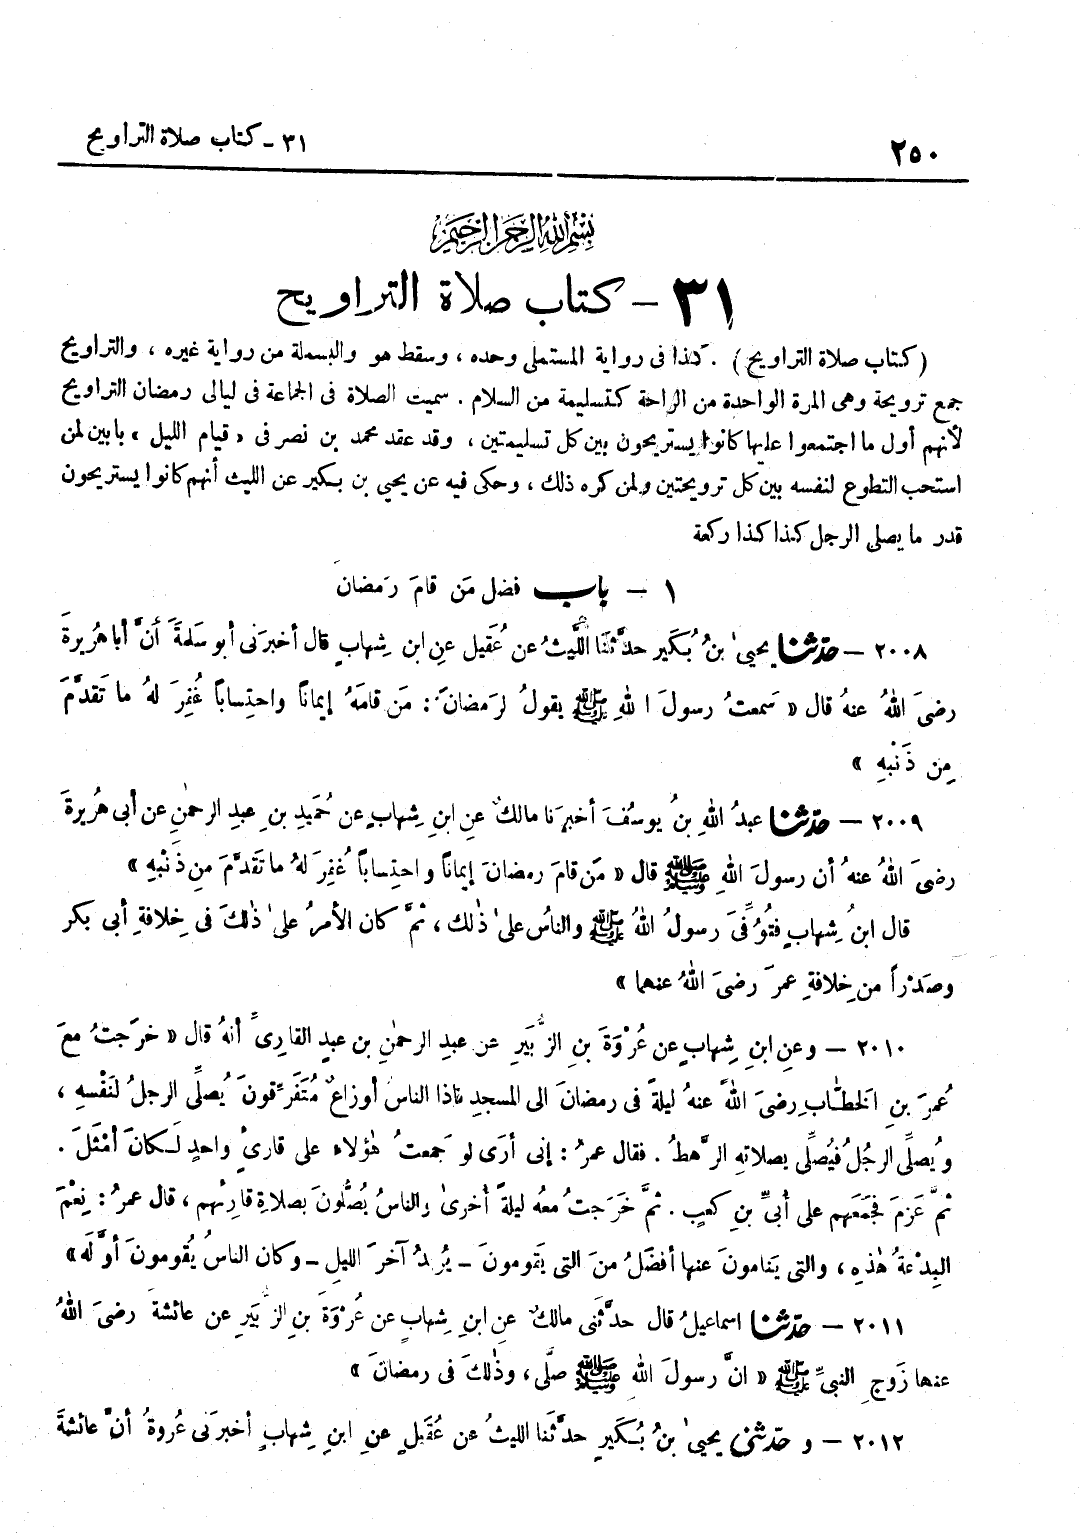 ٢٥٠
٣١ - كتاب صلاة التراويح
بسم الله الرحمن الرحيم
٣١ - كتاب صلاة التراويح
(كتاب صلاة التراويح) . كذا فى رواية المستملى وحده ، وسقط هو والبسملة من رواية غيره ، والتراويح
جمع ترويحة وهى المرة الواحدة من الراحة كتسليمة من السلام . سميت الصلاة فى الجماعة فى ليالى رمضان التراويح
لأنهم أول ما اجتمعوا عليها كانوا يستريحون بين كل تسليمتين ، وقد عقد محمد بن نصر فى « قيام الليل » بابين لمن
استحب التطوع لنفسه بين كل ترويحتين ولمن كره ذلك ، وحكى فيه عن يحيي بن بكير عن الليث أنهم كانوا يستريحون
قدر ما يصلى الرجل كذا كذا ركعة
١ - باب فضل مَن قامَ رَمضان
٢٠٠٨ - حدّثنا يحيىٰ بنُ بُكَير حدَّثَنا اللَّيثُ عن عُقَيل عنِ ابن شِهابٍ قال أخبرَنى أبو سَلمةَ أنَّ أبا هُريرةَ
رضىَ اللهُ عنهُ قال « سَمعتُ رسولَ اللهِ ﷺ يقولُ لرَمضانَ : مَن قامَهُ إيماناً واحتِساباً غُفِرَ لهُ ما تَقدَّمَ
مِن ذَنْبهِ »
٢٠٠٩ - حدّثنا عبدُ اللهِ بنُ يوسُفَ أخبرَنا مالكٌ عنِ ابنِ شِهابٍ عن حُمَيدِ بنِ عبدِ الرحمٰنِ عن أبى هُريرةَ
رضىَ اللهُ عنهُ أن رسولَ اللهِ ﷺ قال « مَن قامَ رمضانَ إيماناً واحتِساباً غُفِرَ لهُ ما تَقدَّمَ مِن ذَنْبهِ »
قال ابنُ شِهابٍ فتُوُفِّىَ رسولُ اللهِ ﷺ والناسُ علىٰ ذٰلك ، ثمَّ كان الأمرُ علىٰ ذٰلكَ فى خِلافةِ أبى بكر
وصَدْراً من خِلافةِ عمرَ رضىَ اللهُ عنهما »
٢٠١٠ - وعنِ ابنِ شِهابٍ عن عُرْوَةَ بنِ الزُّبَيرِ عن عبدِ الرحمٰنِ بن عبدٍ القارىِّ أنهُ قال « خرَجتُ معَ
عُمرَ بنِ الخطَّابِ رضىَ اللهُ عنهُ ليلةً فى رمضانَ الى المسجدِ فاذا الناسُ أوزاعٌ مُتَفَرِّقونَ يُصلِّى الرجلُ لنَفْسهِ ،
ويُصلِّى الرجُلُ فيُصلِّى بصلاتهِ الرَّهطُ . فقال عمرُ : إنى أرَى لو جَمعتُ هٰؤلاء على قارئٍ واحدٍ لَكانَ أمْثَلَ .
ثمَّ عَزمَ فجمَعَهم على أُبىِّ بنِ كعبٍ . ثمَّ خَرَجتُ معهُ ليلةً أخرىٰ والناسُ يُصلُّونَ بصلاةِ قارِئهم ، قال عمرُ : نِعْمَ
البِدْعةُ هٰذهِ ، والتى يَنامونَ عنها أفضَلُ منَ التى يَقومونَ - يُريدُ آخرَ الليلِ - وكان الناسُ يُقومونَ أوَّلَه »
٢٠١١ - حدّثنا اسماعيلُ قال حدَّثنى مالكٌ عنِ ابنِ شِهابٍ عن عُرْوةَ بنِ الزُّبَيرِ عن عائشةَ رضىَ اللهُ
عنها زَوجِ النبىِّ ﷺ « انَّ رسولَ اللهِ ﷺ صلَّى ، وذٰلكَ فى رمضانَ »
٢٠١٢ - و حدّثنى يحيىٰ بنُ بُكَيرٍ حدَّثَنا الليثُ عن عُقَيلٍ عنِ ابنِ شِهابٍ أخبرَنى عُروةُ أنَّ عائشةَ